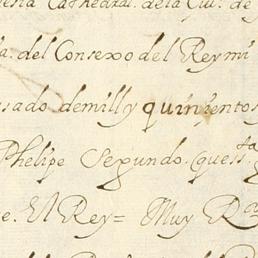 Cathedral. de la Ciu. de
del Consexo del Rey mi
sado de mill y quinientos
Phelipe Segundo. que ss.ta
e. El Rey= Muy R